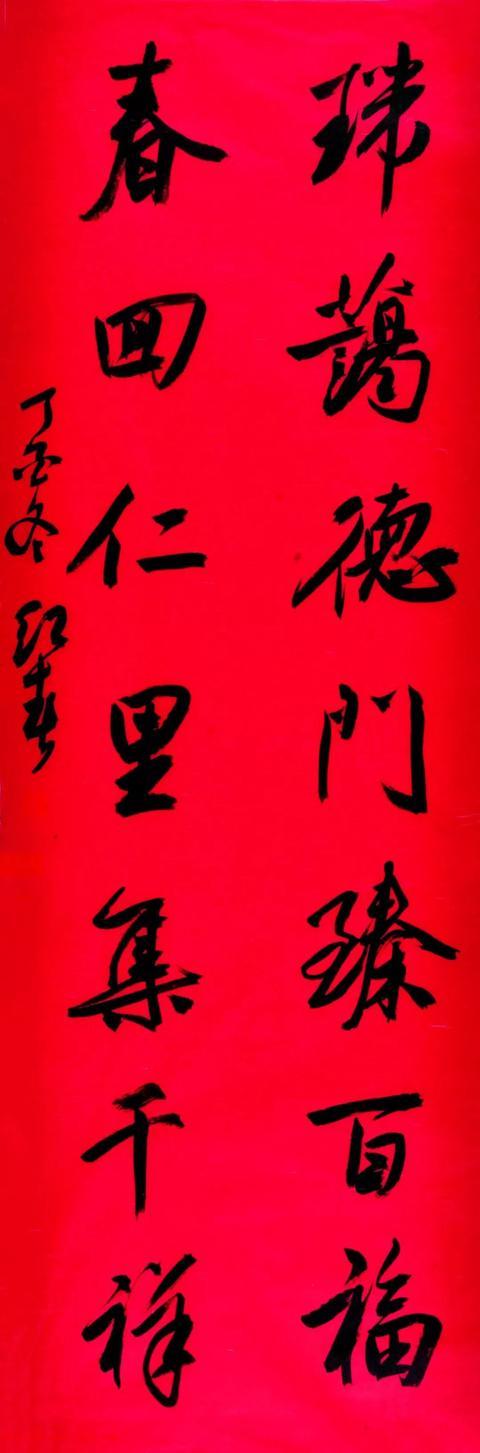 瑞藹德門臻百福
春回仁里集千祥
丁酉冬